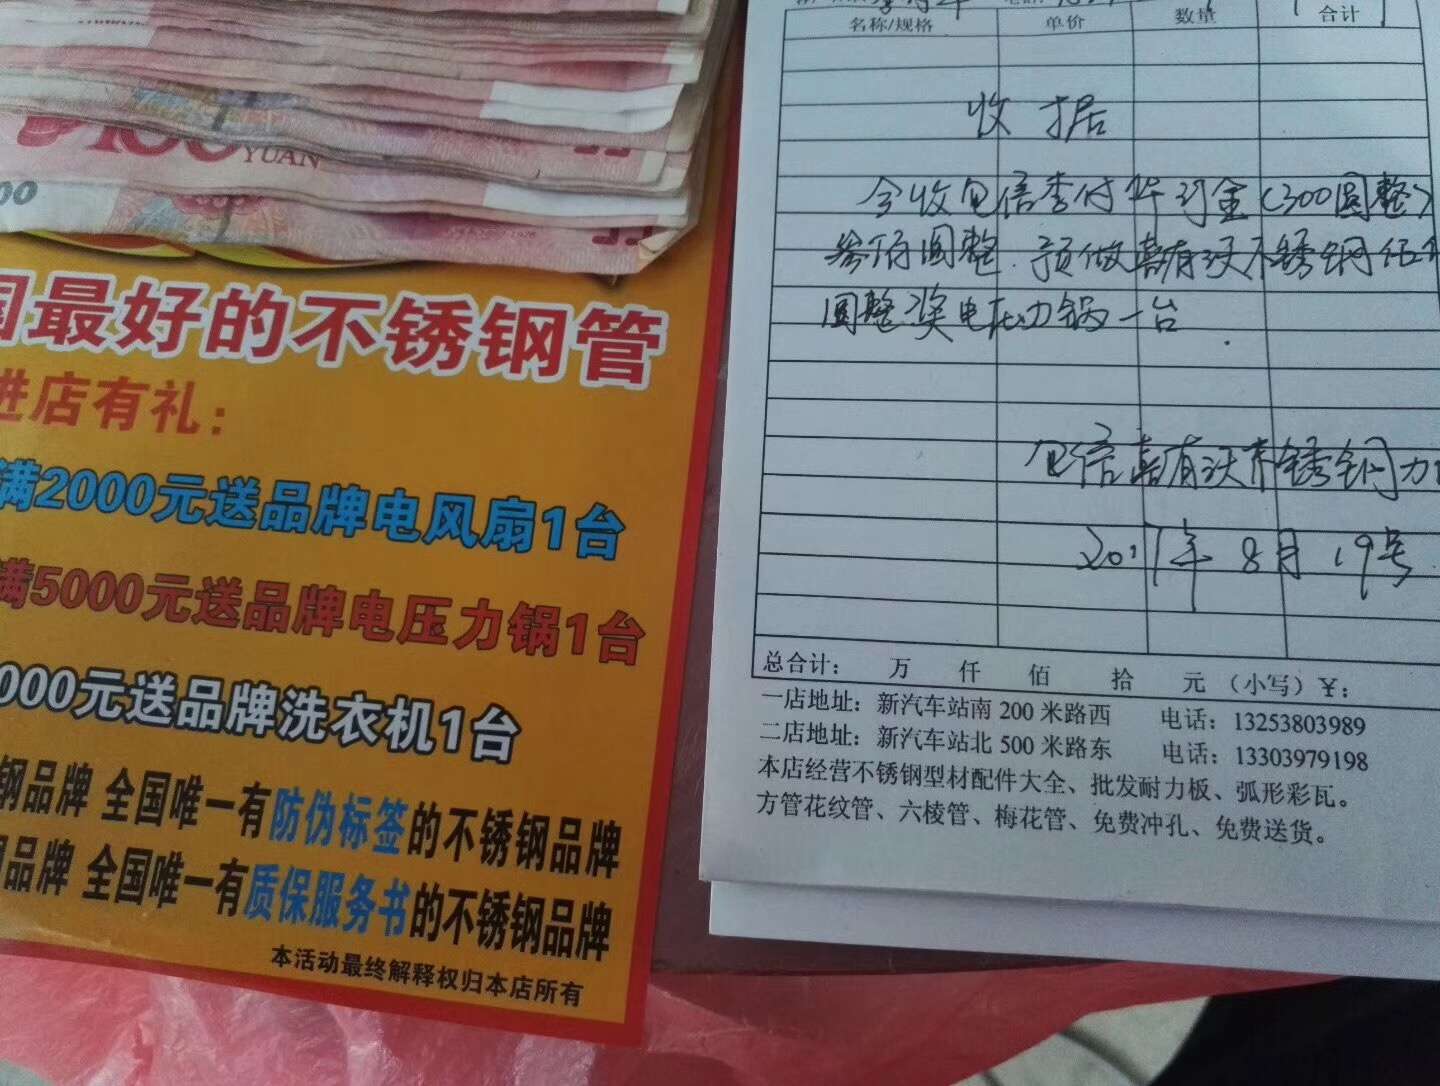 100
YUAN
00
国最好的不锈钢管
进店有礼：
满2000元送品牌电风扇1台
满5000元送品牌电压力锅1台
000元送品牌洗衣机1台
钢品牌 全国唯一有防伪标签的不锈钢品牌
品牌 全国唯一有质保服务书的不锈钢品牌
本活动最终解释权归本店所有
名称/规格 单价 数量 合计
收据
今收包信李付华订金(300圆整)
叁佰圆整.预做喜有沃不锈钢伍仟
圆整奖电压力锅一台.
包信喜有沃不锈钢
2017年8月19号
总合计: 万 仟 佰 拾 元 (小写) ¥:
一店地址: 新汽车站南 200 米路西 电话: 13253803989
二店地址: 新汽车站北 500 米路东 电话: 13303979198
本店经营不锈钢型材配件大全、批发耐力板、弧形彩瓦。
方管花纹管、六棱管、梅花管、免费冲孔、免费送货。